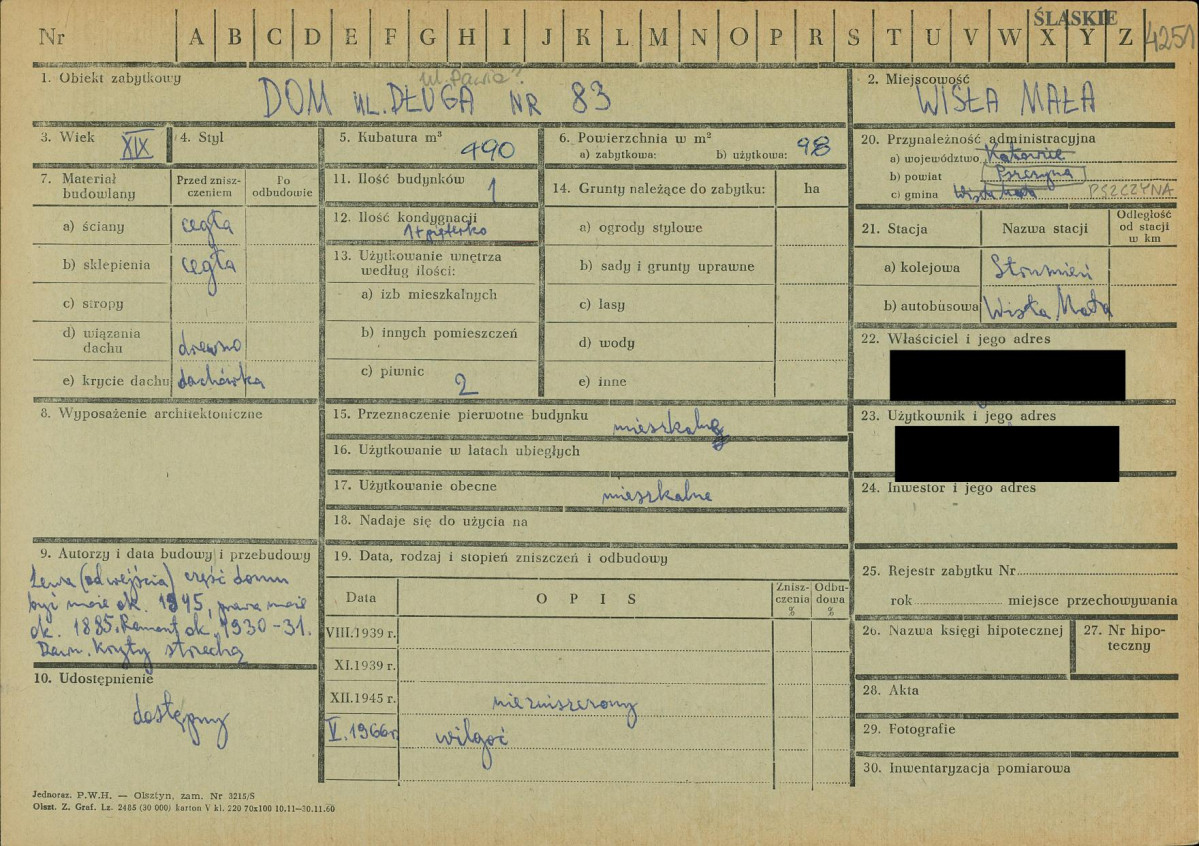 Nr A B C D E F G H I J K L M N O P R S T U V W X Y Z
ŚLĄSKIE
4251
1. Obiekt zabytkowy
ul. Pawia?
DOM UL. DŁUGA NR 83
2. Miejscowość
WISŁA MAŁA
3. Wiek XIX
4. Styl
5. Kubatura m³ 490
6. Powierzchnia w m²
a) zabytkowa: b) użytkowa: 98
7. Materiał budowlany
Przed zniszczeniem
Po odbudowie
a) ściany cegła
b) sklepienia cegła
c) stropy
d) wiązania dachu drewno
e) krycie dachu dachówka
8. Wyposażenie architektoniczne
9. Autorzy i data budowy i przebudowy
Lewa (od wejścia) część domu
być może ok. 1845, prawa może
ok. 1885. Remont ok. 1930-31.
Dawn. kryty strzechą
10. Udostępnienie
dostępny
11. Ilość budynków 1
12. Ilość kondygnacji
1+pięterko
13. Użytkowanie wnętrza według ilości:
a) izb mieszkalnych
b) innych pomieszczeń
c) piwnic 2
14. Grunty należące do zabytku: ha
a) ogrody stylowe
b) sady i grunty uprawne
c) lasy
d) wody
e) inne
15. Przeznaczenie pierwotne budynku mieszkalne
16. Użytkowanie w latach ubiegłych
17. Użytkowanie obecne mieszkalne
18. Nadaje się do użycia na
19. Data, rodzaj i stopień zniszczeń i odbudowy
Data OPIS Zniszczenia % Odbudowa %
VIII.1939 r.
XI.1939 r.
XII.1945 r. niezniszczony
V.1966 r. wilgoć
20. Przynależność administracyjna
a) województwo Katowice
b) powiat Pszczyna
c) gmina Wisła Mała PSZCZYNA
21. Stacja Nazwa stacji Odległość od stacji w km
a) kolejowa Strumień
b) autobusowa Wisła Mała
22. Właściciel i jego adres
23. Użytkownik i jego adres
24. Inwestor i jego adres
25. Rejestr zabytku Nr
rok miejsce przechowywania
26. Nazwa księgi hipotecznej
27. Nr hipoteczny
28. Akta
29. Fotografie
30. Inwentaryzacja pomiarowa
Jednoraz. P.W.H. — Olsztyn, zam. Nr 3215/S
Olszt. Z. Graf. Lz. 2485 (30 000) karton V kl. 220 70x100 10.11—30.11.60